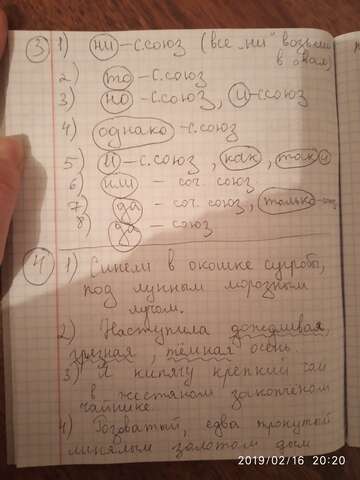 3 1) ни - с.союз (все "ни" возьми
в овал)
2) то - с.союз
3) но - с.союз, и - с.союз
4) однако - с.союз
5) и - с.союз, как, так и
6) или - соч. союз
7) да - соч. союз, только - соч.
8) да - союз
4 1) Синели в окошке сугробы,
под лунным морозным
лучом.
2) Наступила дождливая,
грязная, тёмная осень.
3) Я кипячу крепкий чай
в жестяном закопчёном
чайнике.
4) Розоватый, едва тронутый
линялым золотом дым
2019/02/16 20:20